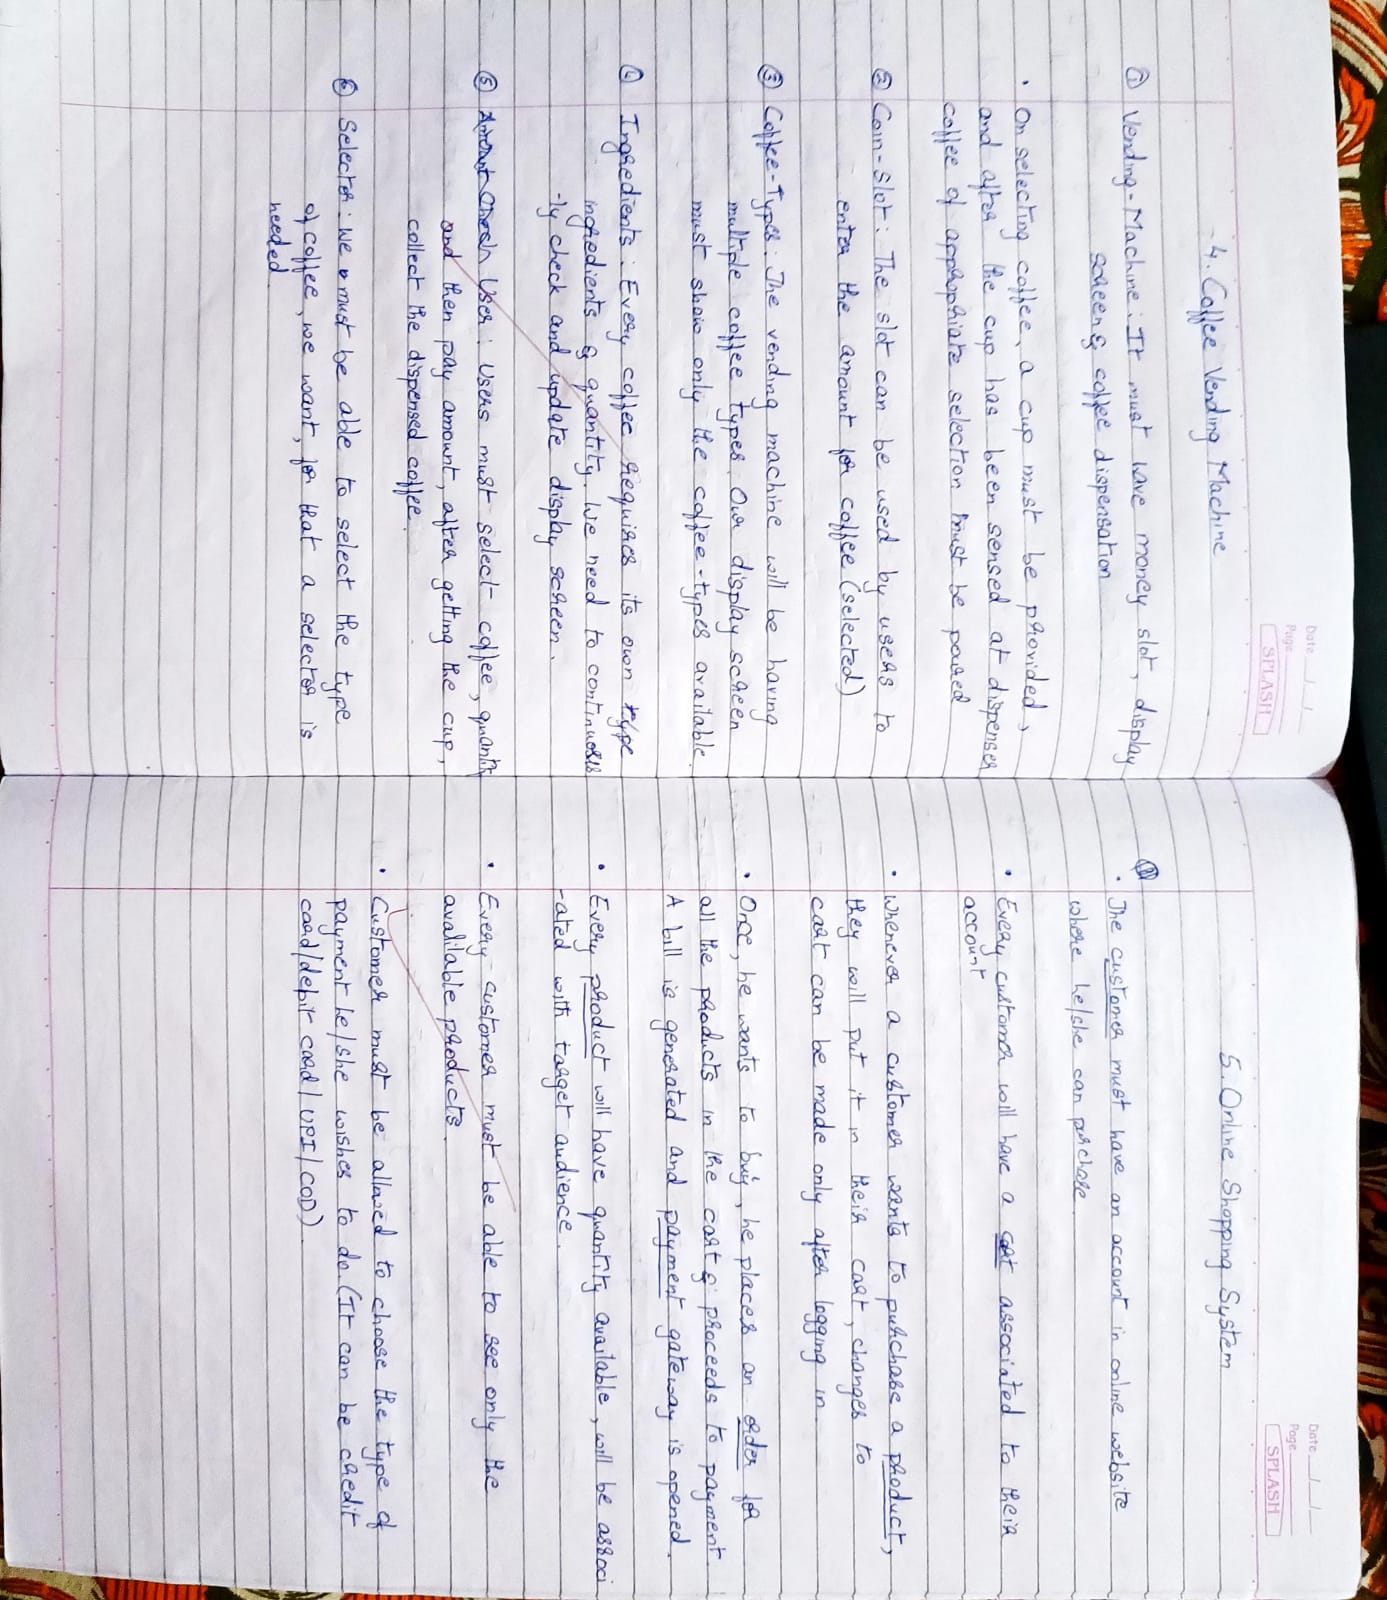 Date __/__/__
Page
SPLASH
4. Coffee Vending Machine
① Vending-Machine: It must have money slot, display
screen & coffee dispensation
• On selecting coffee, a cup must be provided,
and after the cup has been sensed at dispenser
coffee of appropriate selection must be poured
② Coin-Slot: The slot can be used by users to
enter the amount for coffee (selected)
③ Coffee-Types: The vending machine will be having
multiple coffee types. Our display screen
must show only the coffee-types available.
④ Ingredients: Every coffee requires its own type
ingredients & quantity. We need to continuous
-ly check and update display screen.
⑤ User: Users must select coffee, quantity
and then pay amount, after getting the cup,
collect the dispensed coffee.
⑥ Selector: we must be able to select the type
of coffee, we want, for that a selector is
needed.
Date __/__/__
Page
SPLASH
5. Online Shopping System
• The customer must have an account in online website
where he/she can purchase.
• Every customer will have a cart associated to their
account
• Whenever a customer wants to purchase a product,
they will put it in their cart, changes to
cart can be made only after logging in.
• Once, he wants to buy, he places an order for
all the products in the cart & proceeds to payment.
A bill is generated and payment gateway is opened.
• Every product will have quantity available, will be associ
-ated with target audience.
• Every customer must be able to see only the
available products.
• Customer must be allowed to choose the type of
payment he/she wishes to do. (It can be credit
card/debit card/UPI/COD).